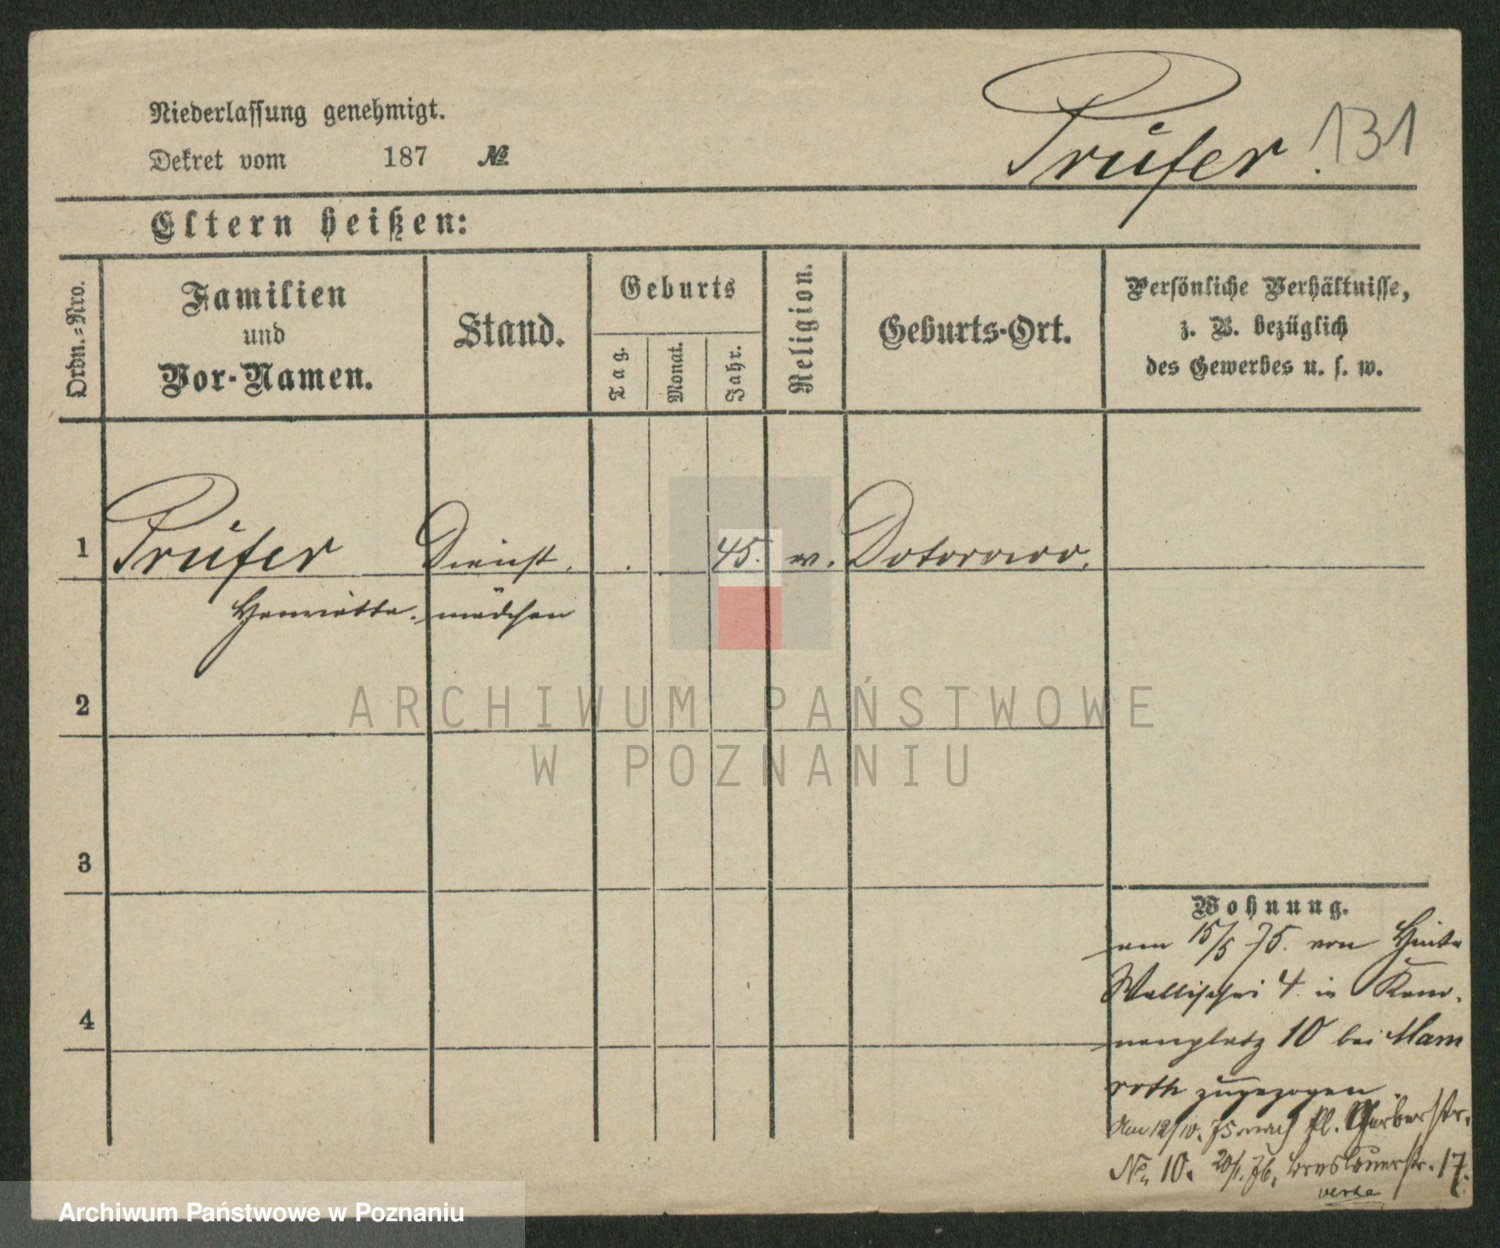 Niederlassung genehmigt.
Dekret vom 187 №.
Prüfer. 131
Eltern heißen:
Ordn.=Nro.
Familien
und
Vor-Namen.
Stand.
Geburts
Tag.
Monat.
Jahr.
Religion.
Geburts-Ort.
Persönliche Verhältnisse,
z. B. bezüglich
des Gewerbes u. s. w.
1 Prüfer Dienst. 45. ev.
Henriette. mädchen
2
3
4
ARCHIWUM PAŃSTWOWE
W POZNANIU
Wohnung.
am 15/5 75. von Hinter
Wallischei 4. in Kano-
nenplatz 10 bei Mam
roth zugezogen.
Am 12/10. 75 nach kl. Gerberstr.
No. 10. 20/1. 76. Breslauerstr. 17.
verso
Archiwum Państwowe w Poznaniu